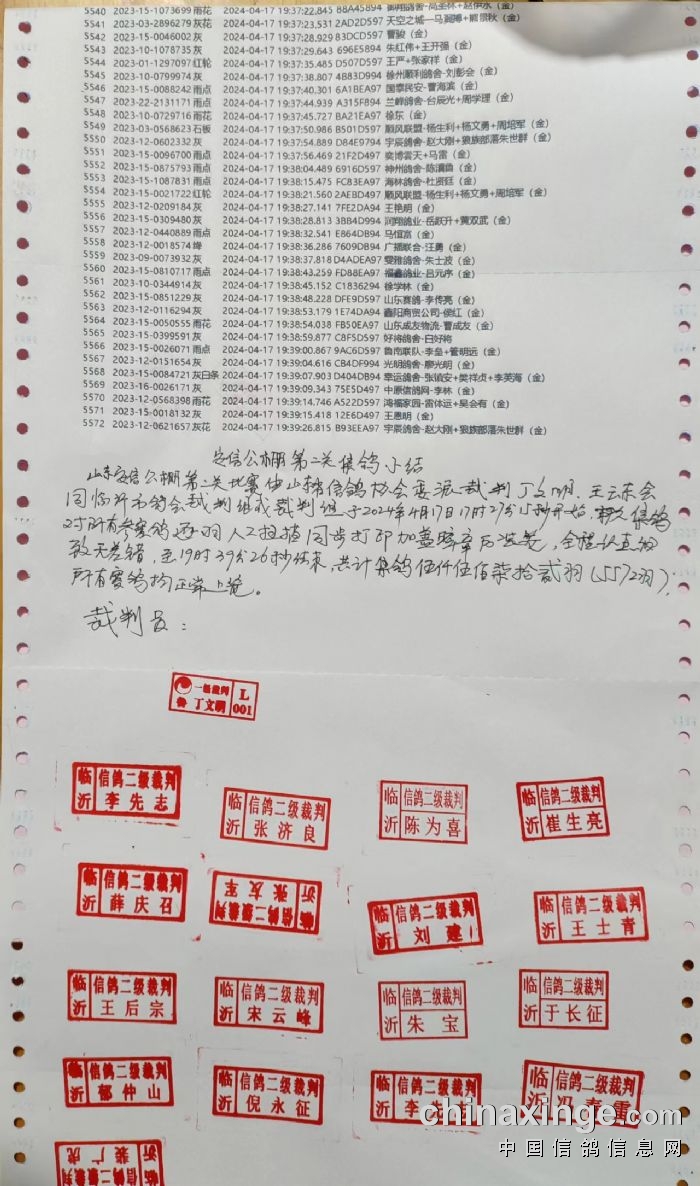 5540 2023-15-1073699 雨花 2024-04-17 19:37:22.845 88A45894
5541 2023-03-2896279 灰花 2024-04-17 19:37:23.531 2AD2D597
5542 2023-15-0046002 灰 2024-04-17 19:37:28.929 83DCD597 曹骏 (金)
5543 2023-10-1078735 灰 2024-04-17 19:37:29.643 696E5894 朱红伟+王开强 (金)
5544 2024-01-1297097 红轮 2024-04-17 19:37:35.485 D507D597 王严+张家祥 (金)
5545 2023-10-0799974 灰 2024-04-17 19:37:38.807 4B83D994 徐州顺利鸽舍-刘彭会 (金)
5546 2023-15-0088242 雨点 2024-04-17 19:37:40.301 6A1BEA97 国泰民安-曹海滨 (金)
5547 2023-22-2131171 雨点 2024-04-17 19:37:44.939 A315F894 兰畔鸽舍-台辰光+周学理 (金)
5548 2023-10-0729716 雨花 2024-04-17 19:37:45.727 BA21EA97 徐东 (金)
5549 2023-03-0568623 石板 2024-04-17 19:37:50.986 B501D597 顺风联盟-杨生利+杨文勇+周培军 (金)
5550 2023-12-0602332 灰 2024-04-17 19:37:54.889 D84E9794 宇辰鸽舍-赵大刚+狼族部落朱世群 (金)
5551 2023-15-0096700 雨点 2024-04-17 19:37:56.469 21F2D497 奕博雲天+马雷 (金)
5552 2023-15-0875793 雨点 2024-04-17 19:38:04.489 6916D597 神州鸽舍-陈满鲁 (金)
5553 2023-15-1087831 雨点 2024-04-17 19:38:15.475 FC83EA97 海林鸽舍-杜贤廷 (金)
5554 2023-15-0021722 红轮 2024-04-17 19:38:21.560 2AEBD497 顺风联盟-杨生利+杨文勇+周培军 (金)
5555 2023-12-0209184 灰 2024-04-17 19:38:27.141 7FE2DA94 王艳明 (金)
5556 2023-15-0309480 灰 2024-04-17 19:38:28.813 3BB4D994 润翔鸽业-岳跃升+黄双武 (金)
5557 2023-12-0440889 雨点 2024-04-17 19:38:32.541 E864DB94 马恒富 (金)
5558 2023-12-0018574 绛 2024-04-17 19:38:36.286 7609DB94 广播联合-汪勇 (金)
5559 2023-09-0073932 灰 2024-04-17 19:38:37.818 D4ADEA97 雯雅鸽舍-朱士波 (金)
5560 2023-15-0810717 雨点 2024-04-17 19:38:43.259 FD88EA97 福鑫鸽业-吕元序 (金)
5561 2023-10-0344914 灰 2024-04-17 19:38:45.152 C1836294 徐学林 (金)
5562 2023-15-0851229 灰 2024-04-17 19:38:48.228 DFE9D597 山东赛鸽-李传亮 (金)
5563 2023-12-0116294 灰 2024-04-17 19:38:53.179 1E74DA94 鑫阳商贸公司-侯红 (金)
5564 2023-15-0050555 雨花 2024-04-17 19:38:54.038 FB50EA97 山东成友物流-曹成友 (金)
5565 2023-15-0399591 灰 2024-04-17 19:38:59.877 C8F5D597 好将鸽舍-白好将
5566 2023-15-0026071 雨点 2024-04-17 19:39:00.867 9AC6D597 鲁南联队-李垒+管明远 (金)
5567 2023-12-0151654 灰 2024-04-17 19:39:04.616 CB4DF994 光明鸽舍-廖光明 (金)
5568 2023-15-0084721 灰白条 2024-04-17 19:39:07.903 D404DB94 幸运鸽舍-张镇安+樊祥贞+李英海 (金)
5569 2023-16-0026171 灰 2024-04-17 19:39:09.343 75E5D497 中原信鸽网-李林 (金)
5570 2023-12-0568398 雨花 2024-04-17 19:39:14.746 A522D597 鸿福家园-雷体运+吴会有 (金)
5571 2023-15-0018132 灰 2024-04-17 19:39:15.418 12E6D497 王恩明 (金)
5572 2023-12-0621657 灰花 2024-04-17 19:39:26.815 B93EEA97 宇辰鸽舍-赵大刚+狼族部落朱世群 (金)
安信公棚第二关集鸽小结
山东安信公棚第二关比赛由山东省信鸽协会委派裁判丁文明、王云东会
同临沂市鸽会裁判组成裁判组于2024年4月17日17时27分 秒开始,
对所有参赛鸽逐羽人工扫描同步打印加盖暗章 全程认真细
致无差错,至19时39分26秒结束,共计集鸽伍仟伍佰柒拾贰羽(5572羽),
所有赛鸽均正常上笼。
裁判员:
一级裁判 L
鲁 丁文明 001
临 信鸽二级裁判
沂 李先志
临 信鸽二级裁判
沂 张济良
临 信鸽二级裁判
沂 陈为喜
临 信鸽二级裁判
沂 崔生亮
临 信鸽二级裁判
沂 薛庆召
临 信鸽二级裁判
沂 张友军
临 信鸽二级裁判
沂 刘建
临 信鸽二级裁判
沂 王士青
临 信鸽二级裁判
沂 王后宗
临 信鸽二级裁判
沂 宋云峰
临 信鸽二级裁判
沂 朱宝
临 信鸽二级裁判
沂 于长征
临 信鸽二级裁判
沂 郁仲山
临 信鸽二级裁判
沂 倪永征
临 信鸽二级裁判
沂 李
临 信鸽二级裁判
沂 冯 雷
沂 裴广虎
临 信鸽二级裁判
chinaxinge.com
中国信鸽信息网